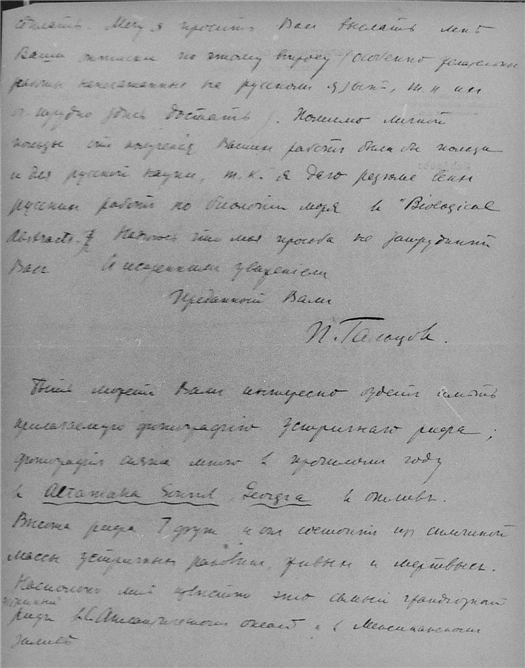 Могу я просить Вас выслать мне
Ваши оттиски по этому вопросу (особенно
работы напечатанные на русском языке, т.к. их
трудно здесь достать). Помимо личной
пользы от получения Ваших работ была бы польза
и для русской науки, т.к. я даю резюме всех
русских работ по биологии моря в "Biological
Abstracts". Надеюсь что моя просьба не затруднит
Вас. С искренним уваженiем
Преданный Вам
П. Гальцов.
Быть может Вам интересно будет иметь
прилагаемую фотографiю устричнаго рифа;
фотографiя снята мною в прошлом году
в Altamaha Sound, Georgia в отлив.
Высота рифа 7 фут. и он состоит из сплошной
массы устричных раковин, живых и мертвых.
Насколько мне известно это самый грандiозный
устричный
риф в С. Атлантическом океане и в Мексиканском
заливе